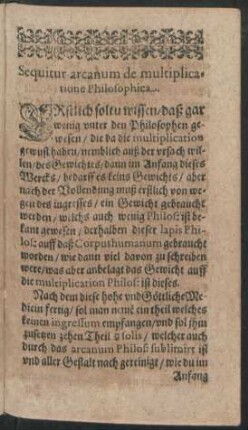 Sequitur arcanum de multiplica-
tione Philosophica.
ERstlich soltu wissen/ daß gar
wenig vnter den Philosophen ge-
wesen/ die da die multiplication
gewust haben/ nemblich auß der vrsach wil-
len/ des Gewichtes/ dann im Anfang dieses
Wercks/ bedarff es keins Gewichts/ aber
nach der Vollendung muß erstlich von we-
gen des ingresses/ ein Gewicht gebraucht
werden/ welchs auch wenig Philos: ist be-
kant gewesen/ derhalben dieser lapis Phi-
los: auff daß Corpus humanum gebraucht
worden/ wie dann viel davon zu schreiben
were/ was aber anbelagt das Gewicht auff
die multiplication Philos: ist dieses.
Nach dem diese hohe vnd Göttliche Me-
dicin fertig/ sol man ein theil welches
keinen ingressum empfangen/ vnd sol ihm
zusetzen zehen Theil solis/ welcher auch
durch das arcanum Philos: sublimirt ist
vnd aller Gestalt nach gereinigt/ wie du im
Anfang